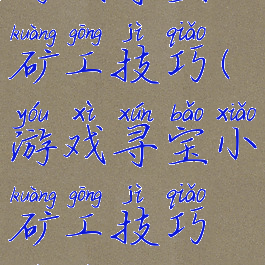 kuàng gōng jì qiǎo
矿工技巧(
yóu xì xún bǎo xiǎo
游戏寻宝小
kuàng gōng jì qiǎo
矿工技巧